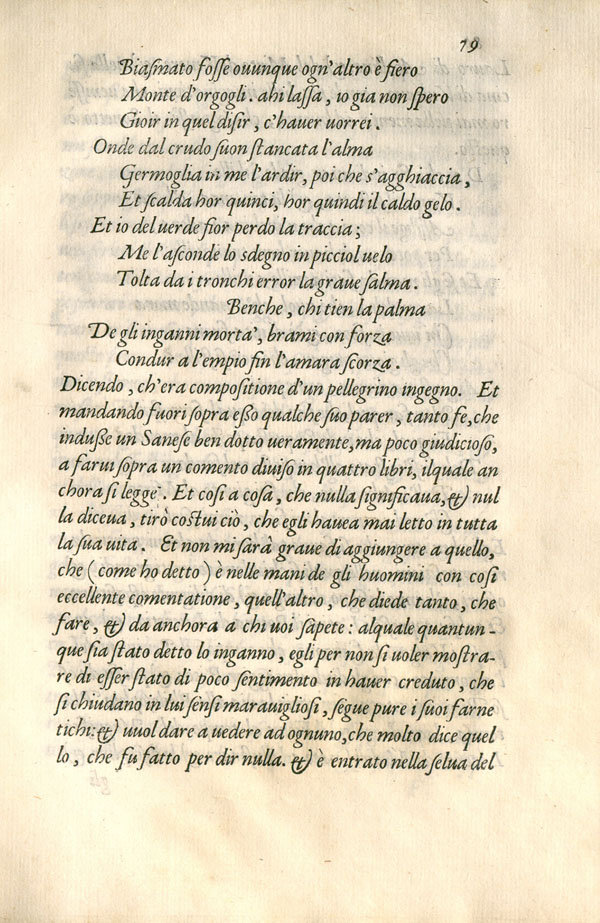 79
Biasmato fosse ouunque ogn'altro è fiero
Monte d'orgogli. ahi lassa, io gia non spero
Gioir in quel disir, c'hauer uorrei.
Onde dal crudo suon stancata l'alma
Germoglia in me l'ardir, poi che s'agghiaccia,
Et scalda hor quinci, hor quindi il caldo gelo.
Et io del uerde fior perdo la traccia;
Me l'asconde lo sdegno in picciol uelo
Tolta da i tronchi error la graue salma.
Benche, chi tien la palma
De gli inganni morta', brami con forza
Condur a l'empio fin l'amara scorza.
Dicendo, ch'era compositione d'un pellegrino ingegno. Et
mandando fuori sopra esso qualche suo parer, tanto fe, che
indusse un Sanese ben dotto ueramente, ma poco giudicioso,
a farui sopra un comento diuiso in quattro libri, ilquale an
chora si legge. Et cosi a cosa, che nulla significaua, & nul
la diceua, tirò costui ciò, che egli hauea mai letto in tutta
la sua uita. Et non mi sarà graue di aggiungere a quello,
che (come ho detto) è nelle mani de gli huomini con cosi
eccellente comentatione, quell'altro, che diede tanto, che
fare, & da anchora a chi uoi sapete: alquale quantun-
que sia stato detto lo inganno, egli per non si uoler mostra-
re di esser stato di poco sentimento in hauer creduto, che
si chiudano in lui sensi marauigliosi, segue pure i suoi farne
tichi: & uuol dare a uedere ad ognuno, che molto dice quel
lo, che fu fatto per dir nulla. & è entrato nella selua del